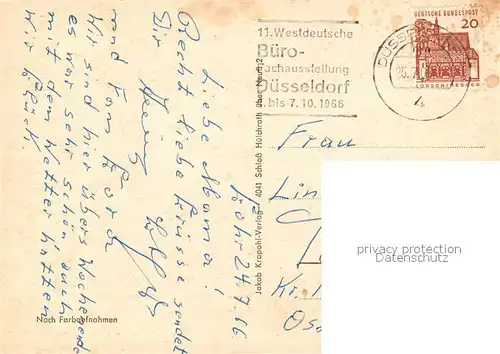 11. Westdeutsche
Büro-
achausstellung
Düsseldorf
bis 7.10.1966
DEUTSCHE BUNDESPOST
20
LORSCH/HESSEN
DÜSS
4
Liebe Mama!
Recht liebe Grüsse sendet
Dir
und
Wir sind hier übers Wochenende
es war sehr schön, auch
mit dem Wetter hatten
wir Glück
24.7.66
Jakob Krapohl-Verlag 4041 Schloß Hülchrath über Neuß 2
Nach Farbaufnahmen
Frau
Lin
Kr.
privacy protection
Datenschutz